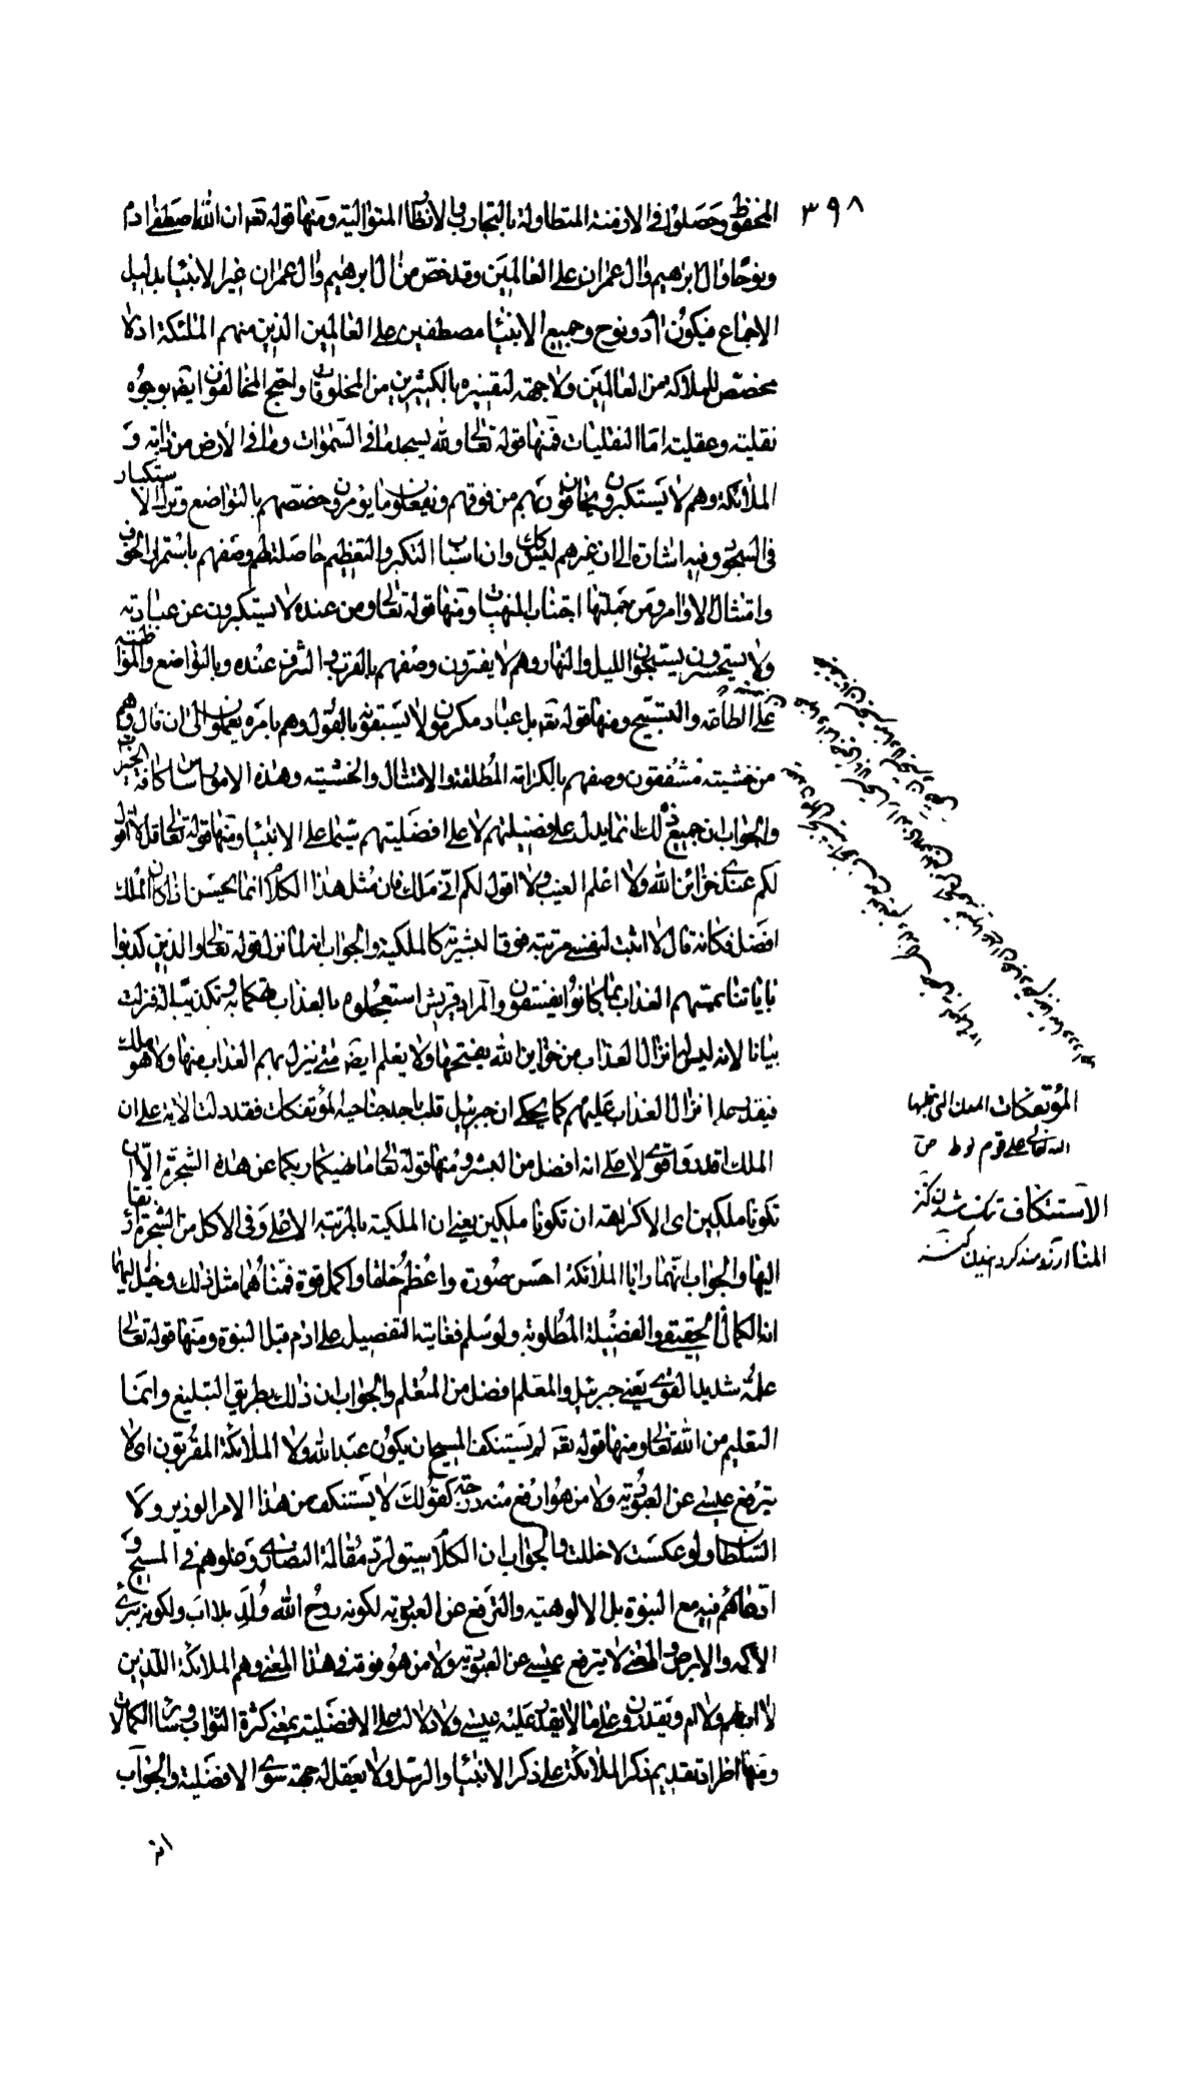 ٣٩٨
المحفوظ وحصلوا في الازمنة المتطاولة بالتجارب والانظار المتوالية ومنها قوله تعه ان الله اصطفى ادم
ونوحا وال ابرهيم وال عمران على العالمين وقد خص من ال ابرهيم وال عمران غير الانبيا بدليل
الاجماع فيكون ادم ونوح وجميع الانبيا مصطفين على العالمين الذين منهم الملئكة اذ لا
مخصص للملائكه من العالمين ولا جهة لتفسيره بالكثيرين من المخلوقات واحتج المخالفون ايضه بوجوه
نقلية وعقلية اما النقليات فمنها قوله تعالى ولله يسجد ما في السموات وما في الارض من دابة و
الملائكة وهم لا يستكبرون يخافون ربهم من فوقهم ويفعلون ما يؤمرون خصصهم بالتواضع وترك الاستكبار
في السجود وفيه اشارة الى ان غيرهم ليس كك وان اسباب التكبر والتعظيم حاصلة لهم وصفهم باستمرار الخوف
وامتثال الاوامر ومن جملتها اجتناب المنهيات ومنها قوله تعالى ومن عنده لا يستكبرون عن عبادته
ولا يستحسرون يسبحون الليل والنهار وهم لا يفترون وصفهم بالقرب والشرف عنده وبالتواضع والمواظبة
على الطاعة والتسبيح ومنها قوله تعه بل عباد مكرمون لا يسبقونه بالقول وهم بامره يعملون الى ان قال وهم
من خشيته مشفقون وصفهم بالكرامة المطلقة والامتثال والخشية وهذه الامور اساس كافة الخيرات
والجواب ان جميع ذلك انما يدل على فضيلتهم لا على افضليتهم سيما على الانبيا ومنها قوله تعالى قل لا اقول
لكم عندي خزائن الله ولا اعلم الغيب ولا اقول لكم اني ملك فان مثل هذا الكلام انما يحسن اذا كان الملك
افضل فكانه قال لا اثبت لنفسي مرتبة فوق البشرية كالملكية والجواب انه لما نزل قوله تعالى والذين كذبوا
باياتنا يمسهم العذاب بما كانوا يفسقون والمراد قريش استعجلوه بالعذاب تهكما به وتكذيبا له فنزلت
بيانا لانه ليس له انزال العذاب من خزاين الله يفتحها ولا يعلم ايضه متى ينزل بهم العذاب منها ولا هو ملك
فيقدر على انزال العذاب عليهم كما يحكى ان جبرئيل قلب باحد جناحيه المؤتفكات فقد دلت الاية على ان
الملك اقدر واقوى لا على انه افضل من البشر ومنها قوله تعالى ما نهيكما ربكما عن هذه الشجرة الا ان
تكونا ملكين اى الا كراهة ان تكونا ملكين يعني ان الملكية بالمرتبة الاعلى وفي الاكل من الشجرة ارتقا
اليها والجواب انهما رايا الملائكة احسن صورة واعظم خلقا واكمل قوة فمناهما مثل ذلك وخيل اليهما
انه الكمال الحقيقي والفضيلة المطلوبة ولو سلم فغايته التفضيل على ادم قبل النبوة ومنها قوله تعالى
علمه شديد القوى يعني جبرئيل والمعلم افضل من المتعلم والجواب ان ذلك بطريق التبليغ وانما
التعليم من الله تعالى ومنها قوله تعه لن يستنكف المسيح ان يكون عبدا لله ولا الملائكة المقربون اى لا
يترفع عيسى عن العبودية ولا من هو ارفع منه درجة كقولك لا يستنكف من هذا الامر الوزير ولا
السلطان ولو عكست لاخللت والجواب ان الكلام سيق لرد مقالة النصارى وغلوهم في المسيح و
ادعائهم فيه مع النبوة بل الالوهية والترفع عن العبودية لكونه روح الله ولد بلا اب ولكونه يبرئ
الاكمه والابرص والمعنى لا يترفع عيسى عن العبودية ولا من هو فوقه في هذا المعنى وهم الملائكة الذين
لا اب لهم ولا ام ويقدرون على ما لا يقدر عليه عيسى ولا دلالة على الافضلية بمعنى كثرة الثواب وسائر الكمالات
ومنها اطراد تقديم ذكر الملائكة على ذكر الانبيا والرسل ولا يعقل له جهة سوى الافضلية والجواب
انه
المؤتفكات المدن التي قلبها
الله تعالى على قوم لوط ص
الاستنكاف
المنا ارزومند كردانيدن